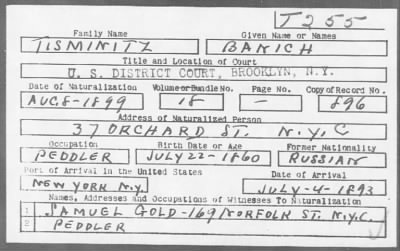 T255
Family Name Given Name or Names
TISMINITZ BARICH
Title and Location of Court
U. S. DISTRICT COURT, BROOKLYN, N.Y.
Date of Naturalization Volume or Bundle No. Page No. Copy of Record No.
AUG. 8-1899 18 - 896
Address of Naturalized Person
37 ORCHARD ST. N.Y.C
Occupation Birth Date or Age Former Nationality
PEDDLER JULY 22-1860 RUSSIAN
Port of Arrival in the United States Date of Arrival
NEW YORK N.Y. JULY-4-1893
Names, Addresses and Occupations of Witnesses To Naturalization
1 SAMUEL GOLD-169 NORFOLK ST. N.Y.C.
2 PEDDLER